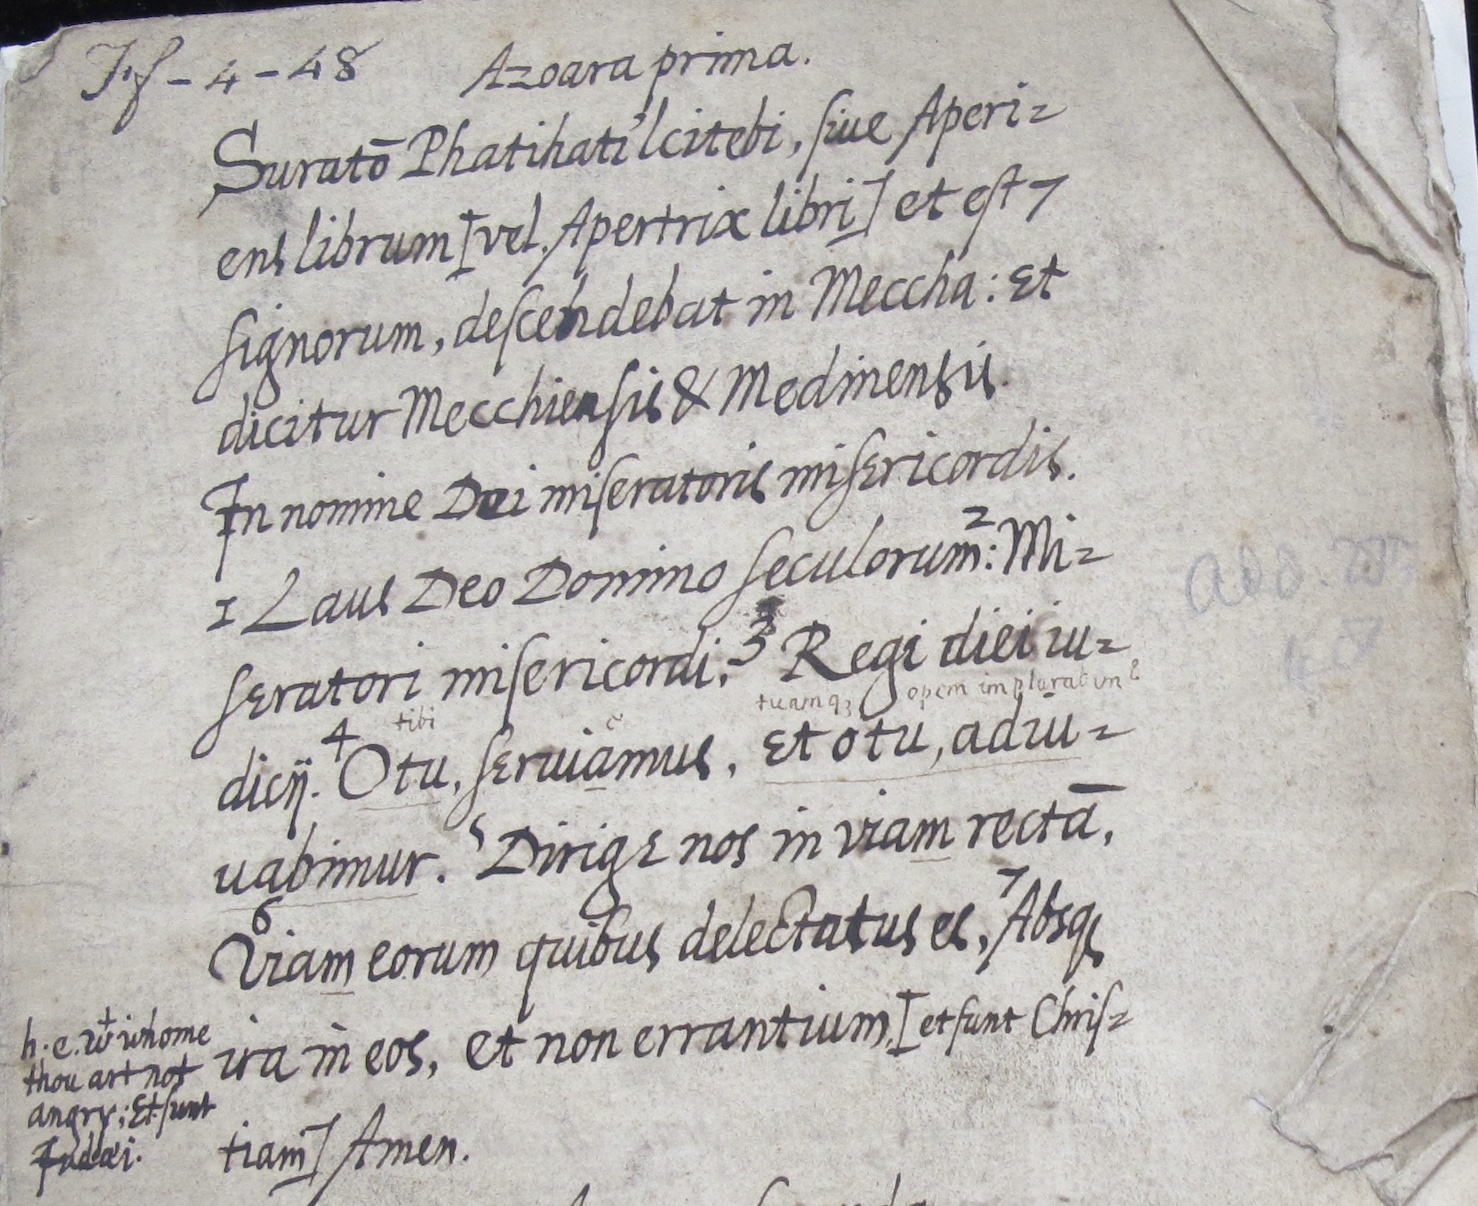 If-4-48 Azoara prima.
Suratō Phatihati'lcitebi, siue Aperi=
ens librum [vel. Apertrix libri] et est 7
signorum, descendebat in Meccha: Et
dicitur Mecchiensis & Medinensis.
In nomine Dei miseratoris misericordis.
1 Laus Deo Domino seculorum: 2 Mi=
seratori misericordi, 3 Regi diei iu=
tibi tuamq3 opem implorabūn
dicij. 4 O tu, seruiamus, Et o tu, adiu=
uabimur. 5 Dirige nos in viam rectā,
6 Viam eorum quibus delectatus es, 7 Absq3
ira in eos, et non errantium, [et sunt Chris=
tiam] Amen.
h.e. wt whome
thou art not
angry; Et sunt
Judæi.